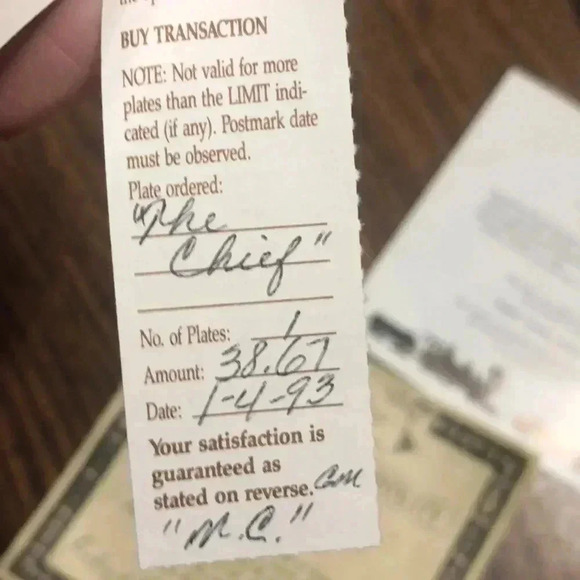 BUY TRANSACTION
NOTE: Not valid for more
plates than the LIMIT indi-
cated (if any). Postmark date
must be observed.
Plate ordered:
"The
Chief"
No. of Plates: 1
Amount: 38.67
Date: 1-4-93
Your satisfaction is
guaranteed as
stated on reverse.
"M.C."